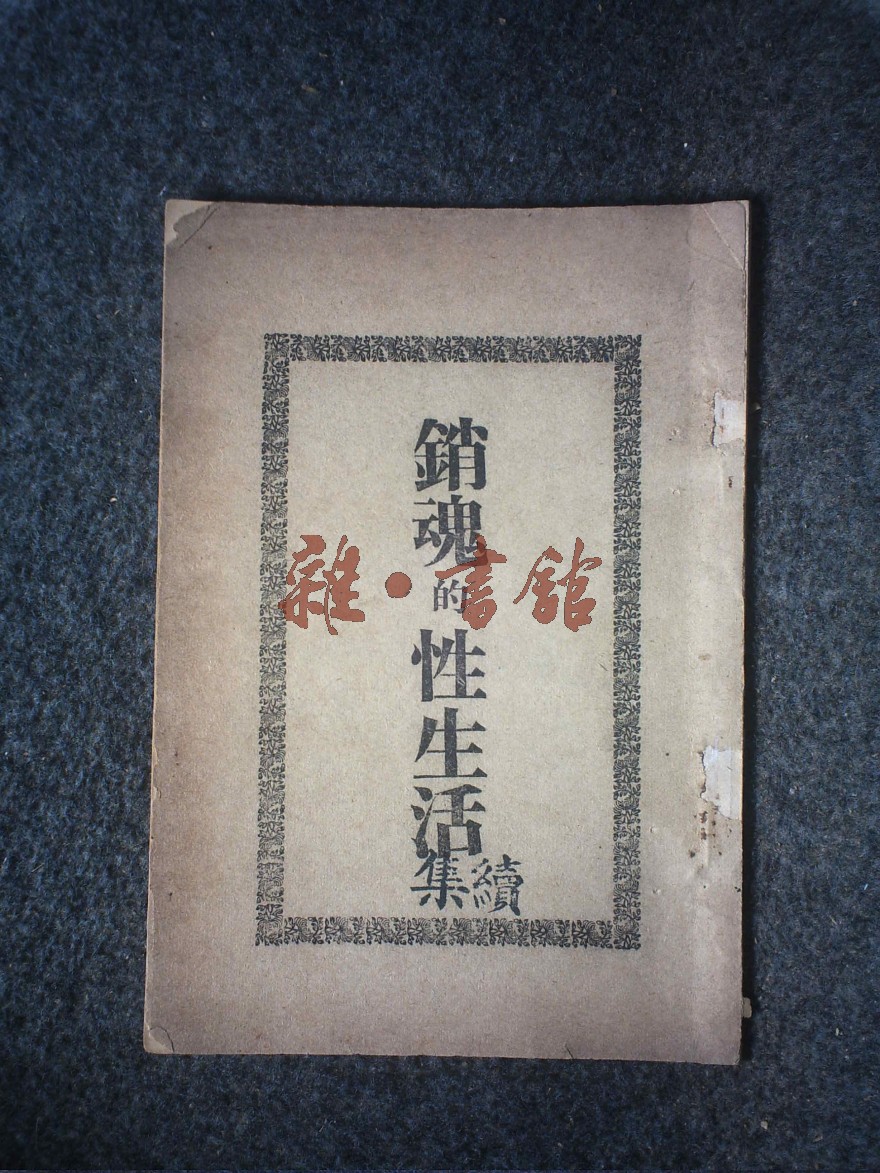 銷魂的性生活
續集
雜·書館